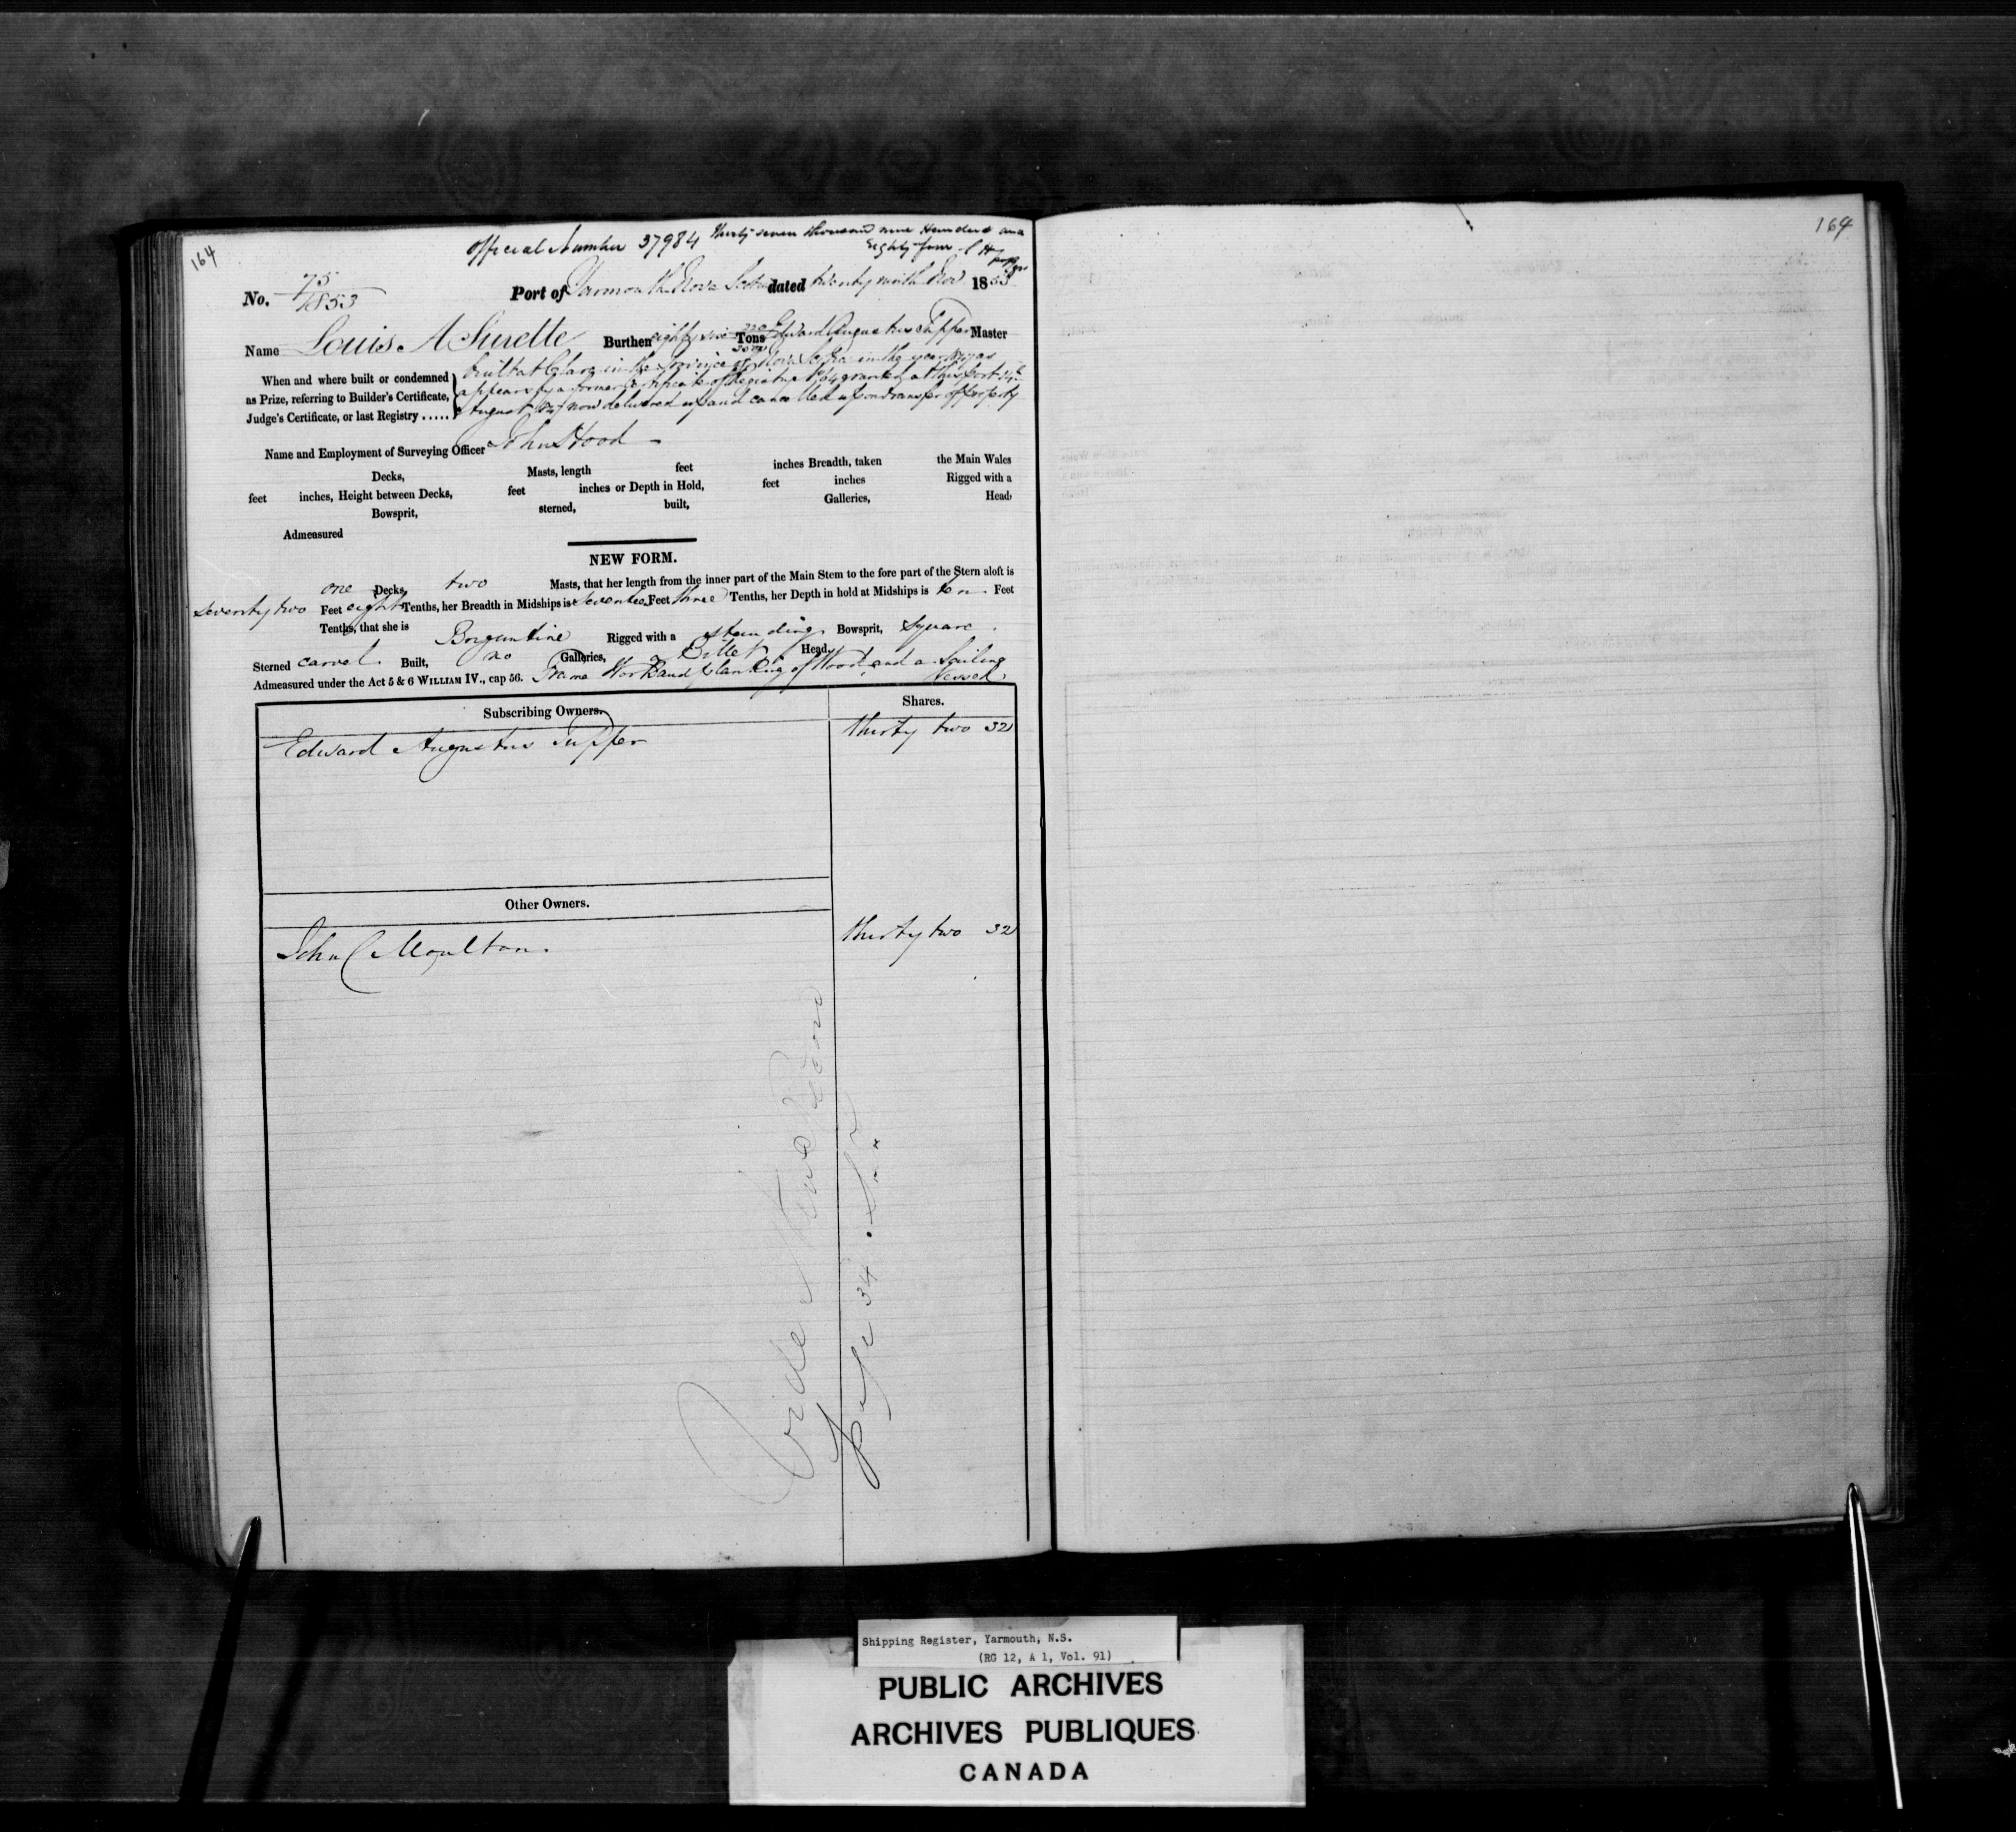 164
164
Official Number 37984 thirty seven thousand nine Hundred and
Eighty four
No. 75
1853
Port of Yarmouth Nova Scotia dated twenty ninth Nov 1853
Name Louis A Surette Burthen eighty Tons Edward Augustus Tupper Master
When and where built or condemned
as Prize, referring to Builder's Certificate,
Judge's Certificate, or last Registry .....
built at Clare in the Province of Nova Scotia in the year as
appears by a former Certificate of Registry granted at this port
August now delivered up and cancelled upon transfer of Property
Name and Employment of Surveying Officer John Hood
Decks, Masts, length feet inches Breadth, taken the Main Wales
feet inches, Height between Decks, feet inches or Depth in Hold, feet inches Rigged with a
Bowsprit, sterned, built, Galleries, Head,
Admeasured
NEW FORM.
one Decks, two Masts, that her length from the inner part of the Main Stem to the fore part of the Stern aloft is
seventy two Feet eight Tenths, her Breadth in Midships is seventeen Feet three Tenths, her Depth in hold at Midships is ten Feet
Tenths, that she is Brigantine Rigged with a standing Bowsprit, Square
Sterned carvel Built, no Galleries, a Billet Head,
Admeasured under the Act 5 & 6 WILLIAM IV., cap 56. Frame Work and planking of Wood, and a Sailing
Vessel.
Subscribing Owners. Shares.
Edward Augustus Tupper thirty two 32
Other Owners.
John C Moulton. thirty two 32
page 34
Shipping Register, Yarmouth, N.S.
(RG 12, A 1, Vol. 91)
PUBLIC ARCHIVES
ARCHIVES PUBLIQUES
CANADA